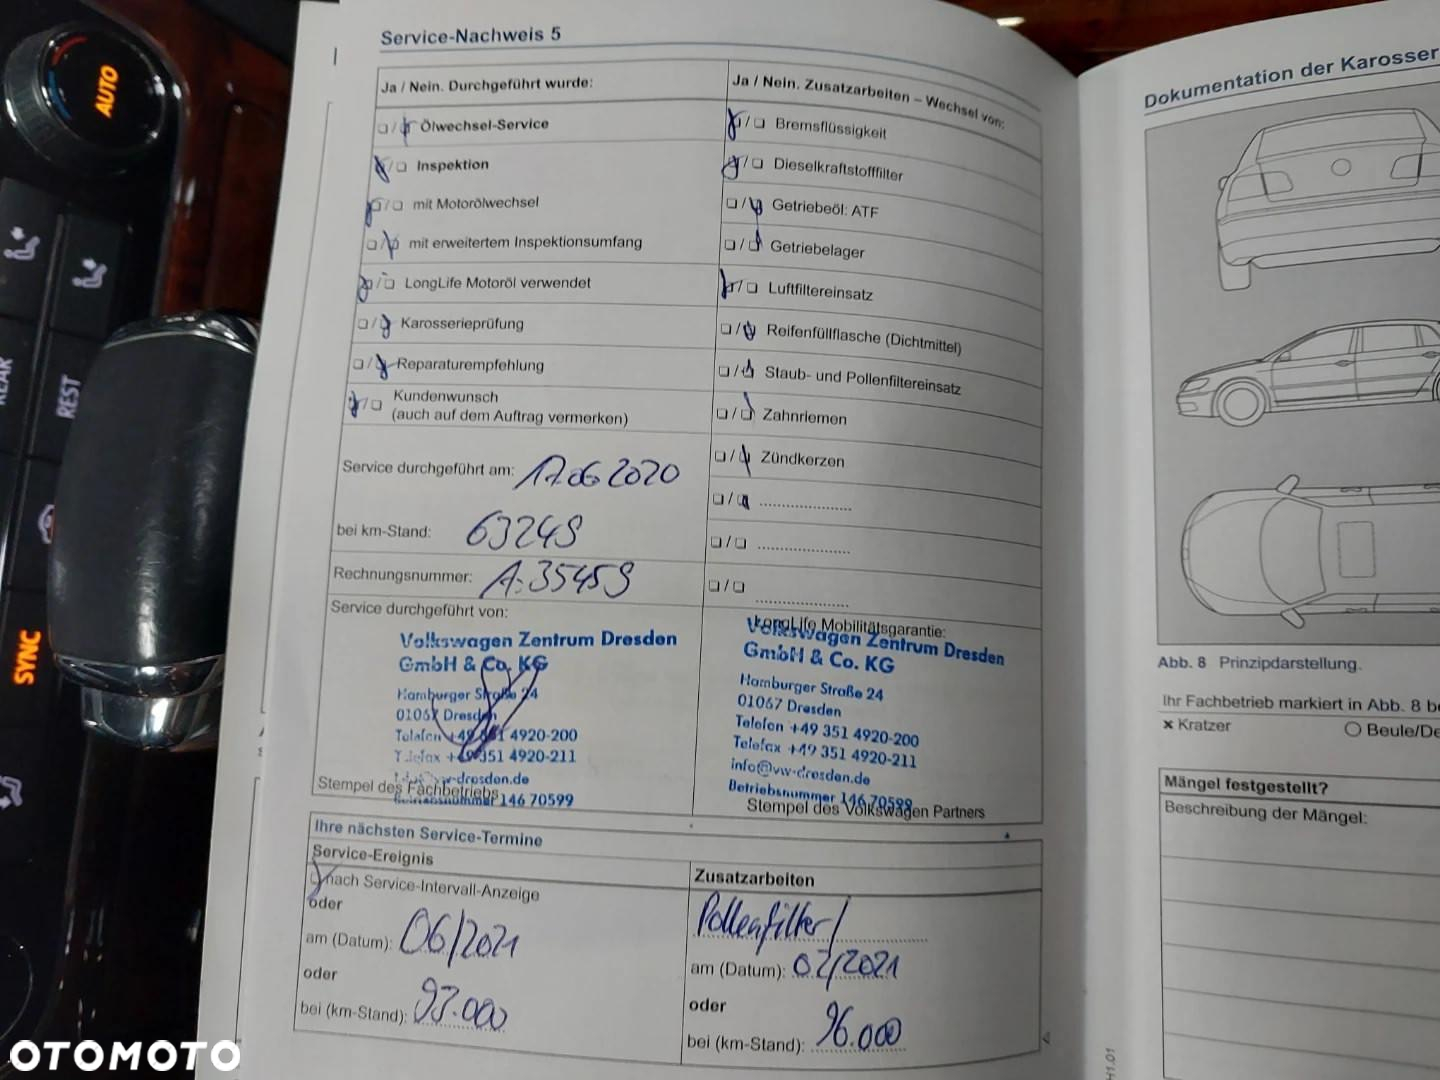 Service-Nachweis 5
Ja / Nein. Durchgeführt wurde:
Ölwechsel-Service
Inspektion
mit Motorölwechsel
mit erweitertem Inspektionsumfang
LongLife Motoröl verwendet
Karosserieprüfung
Reparaturempfehlung
Kundenwunsch
(auch auf dem Auftrag vermerken)
Service durchgeführt am: 17.06 2020
bei km-Stand: 63249
Rechnungsnummer: A.35459
Service durchgeführt von:
Volkswagen Zentrum Dresden
GmbH & Co. KG
Hamburger Straße 24
01067 Dresden
Telefon +49 351 4920-200
Telefax +49 351 4920-211
Stempel des Fachbetriebs
Betriebsnummer 146 70599
Ja / Nein. Zusatzarbeiten – Wechsel von:
Bremsflüssigkeit
Dieselkraftstofffilter
Getriebeöl: ATF
Getriebelager
Luftfiltereinsatz
Reifenfüllflasche (Dichtmittel)
Staub- und Pollenfiltereinsatz
Zahnriemen
Zündkerzen
LongLife Mobilitätsgarantie:
Volkswagen Zentrum Dresden
GmbH & Co. KG
Hamburger Straße 24
01067 Dresden
Telefon +49 351 4920-200
Telefax +49 351 4920-211
info@vw-dresden.de
Betriebsnummer 146 70599
Stempel des Volkswagen Partners
Ihre nächsten Service-Termine
Service-Ereignis
nach Service-Intervall-Anzeige
oder
am (Datum): 06/2021
oder
bei (km-Stand): 93.000
Zusatzarbeiten
Pollenfilter/
am (Datum): 02/2021
oder
bei (km-Stand): 96.000
Dokumentation der Karosser
Abb. 8 Prinzipdarstellung.
Ihr Fachbetrieb markiert in Abb. 8 be
x Kratzer
Beule/De
Mängel festgestellt?
Beschreibung der Mängel:
H1.01
AUTO
REAR
REST
SYNC
OTOMOTO